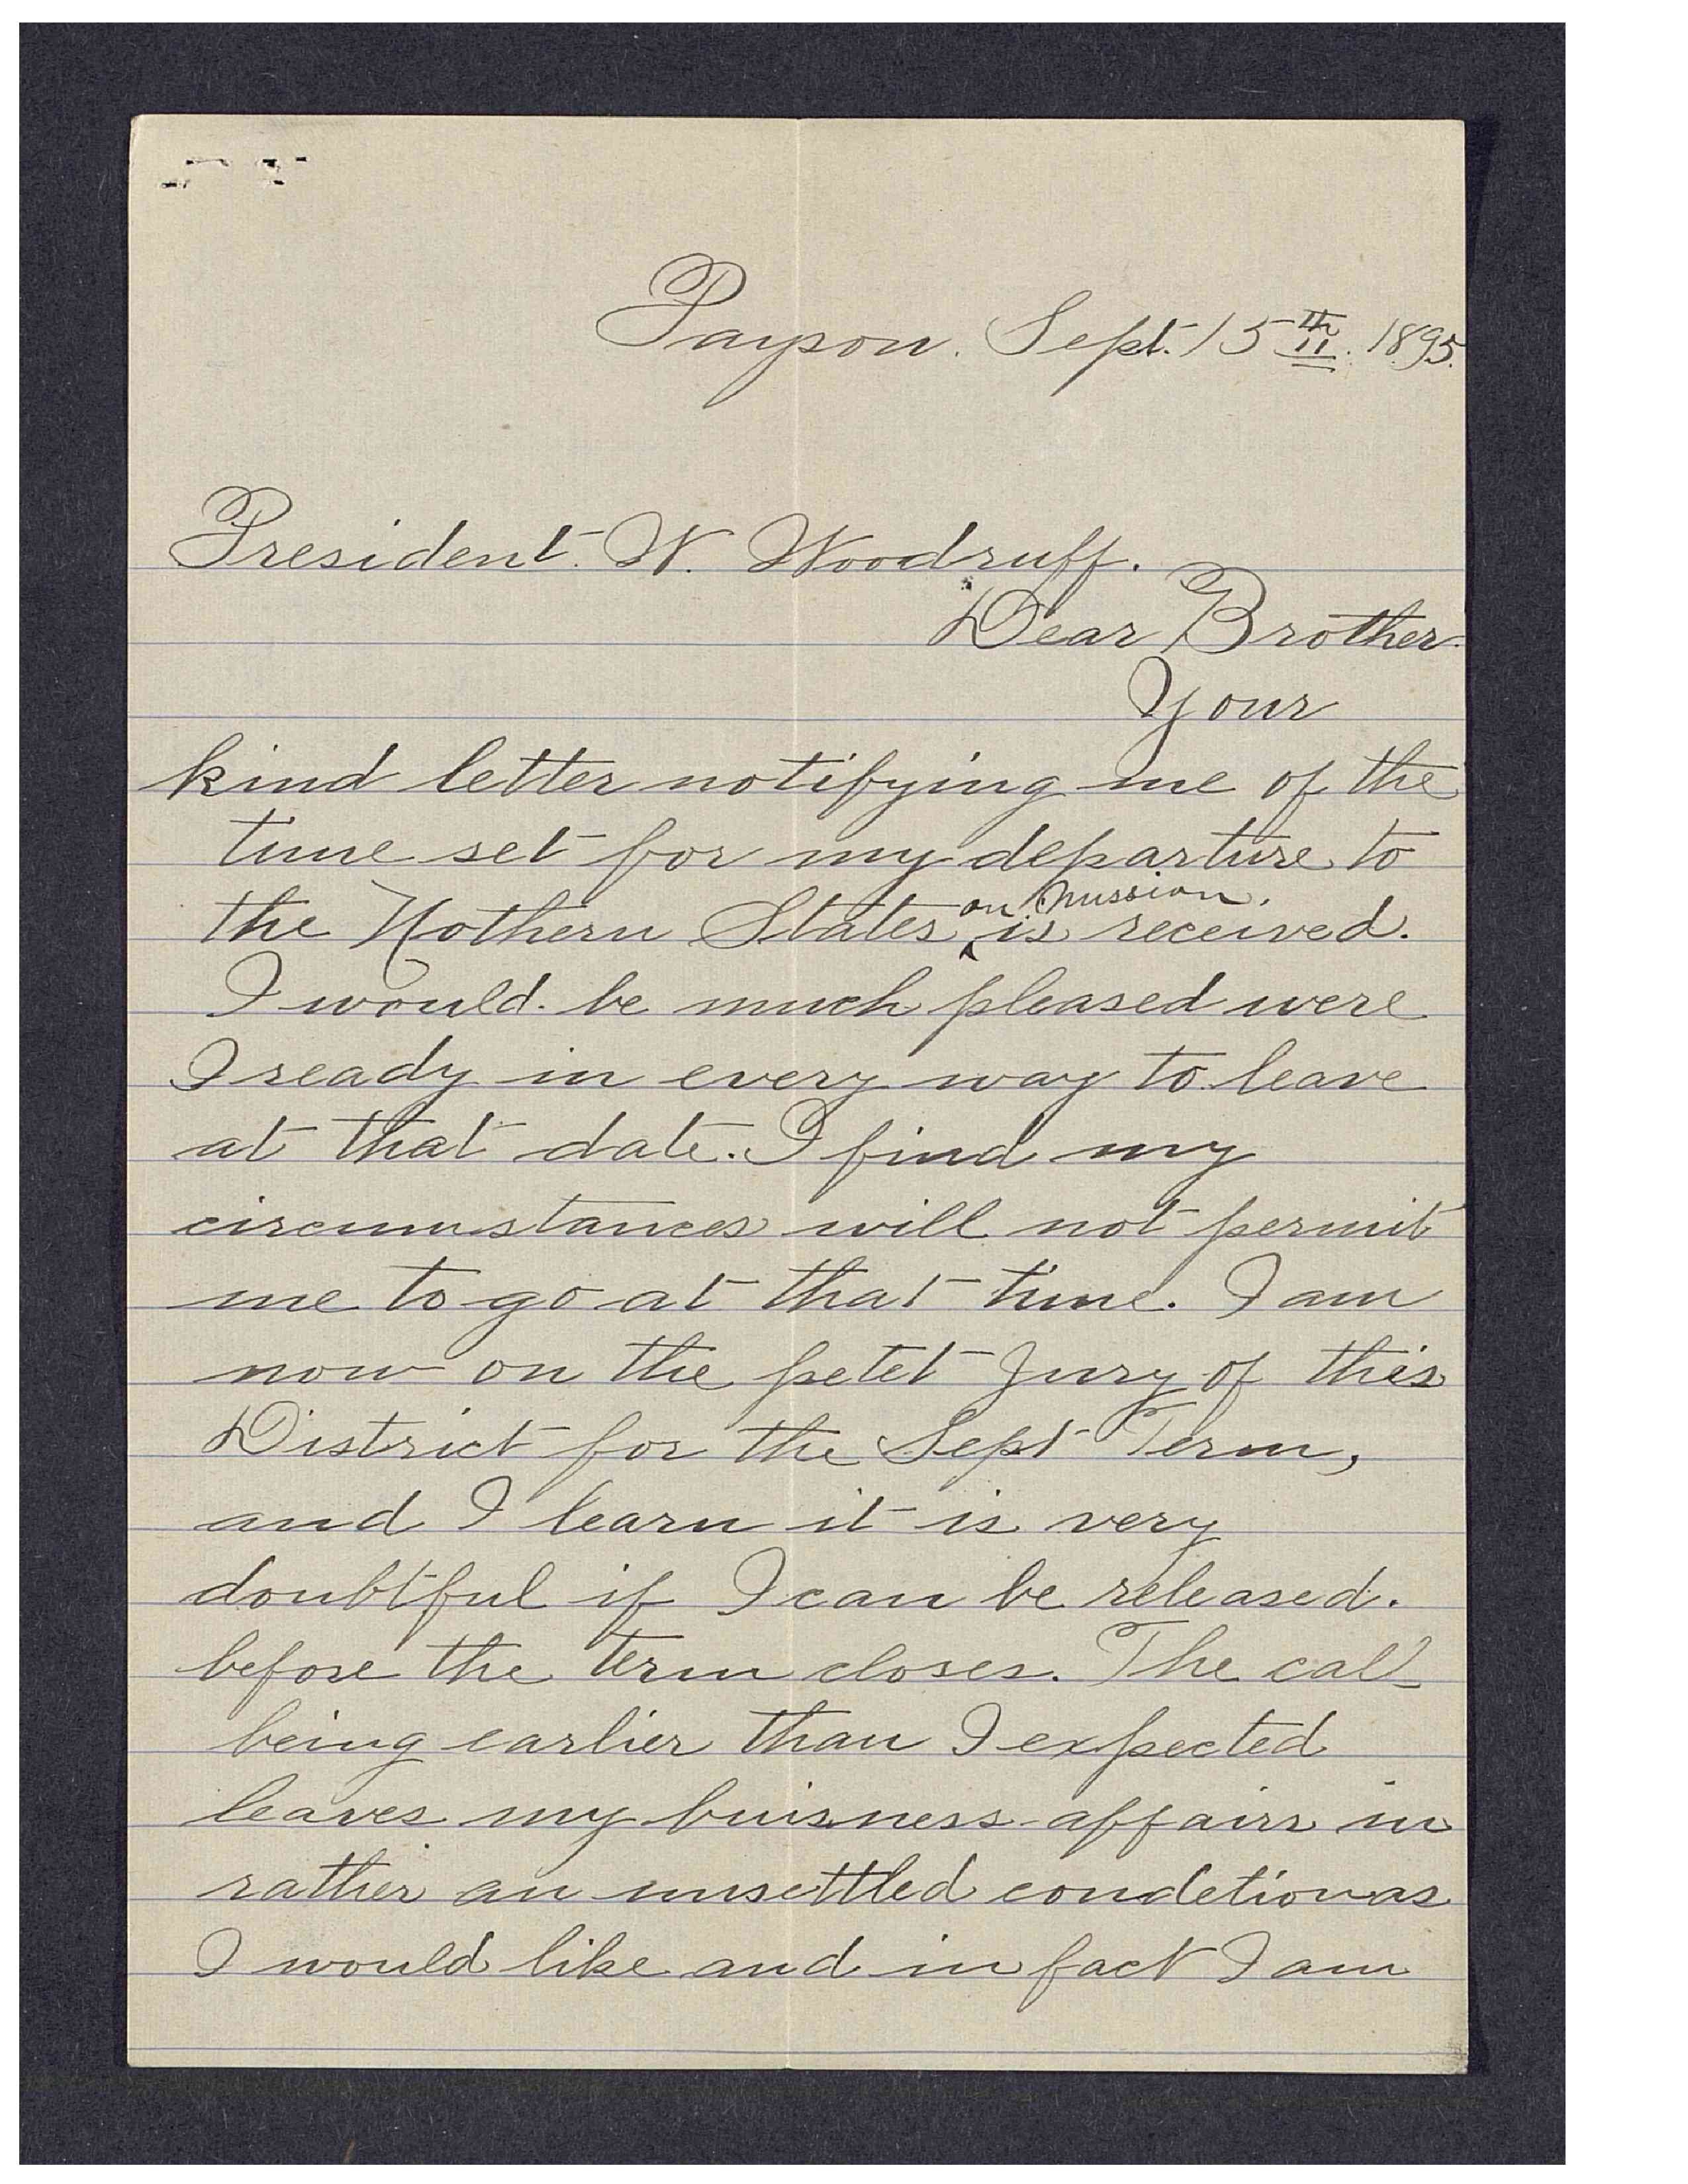 Payson. Sept. 15th. 1895.
President. W. Woodruff.
Dear Brother.
Your
kind letter notifying me of the
time set for my departure to
on mission.
the Nothern States ^ is received.
I would be much pleased were
I ready in every way to leave
at that date. I find my
circumstances will not permit
me to go at that time. I am
now on the petet Jury of this
District for the Sept Term,
and I learn it is very
doubtful if I can be released.
before the term closes. The call
being earlier than I expected
leaves my buisness affairs in
rather an unsettled condetion as
I would like and in fact I am